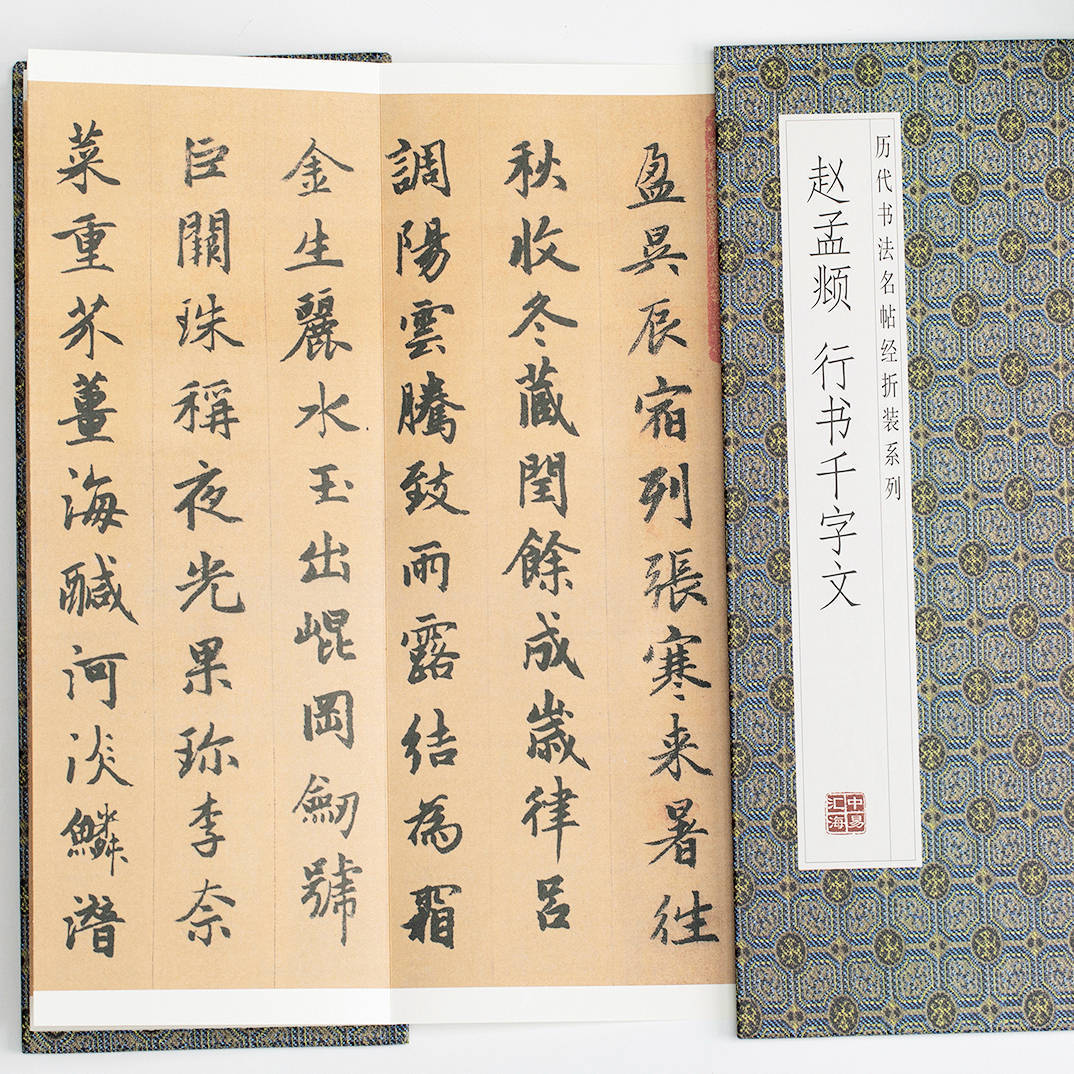 历代书法名帖经折装系列
赵孟頫 行书千字文
中易
汇海
盈昃辰宿列張寒来暑往
秋收冬藏閏餘成歲律吕
調陽雲騰致雨露結為霜
金生麗水玉出崐岡劒號
巨闕珠稱夜光果珎李柰
菜重芥薑海鹹河淡鱗潛